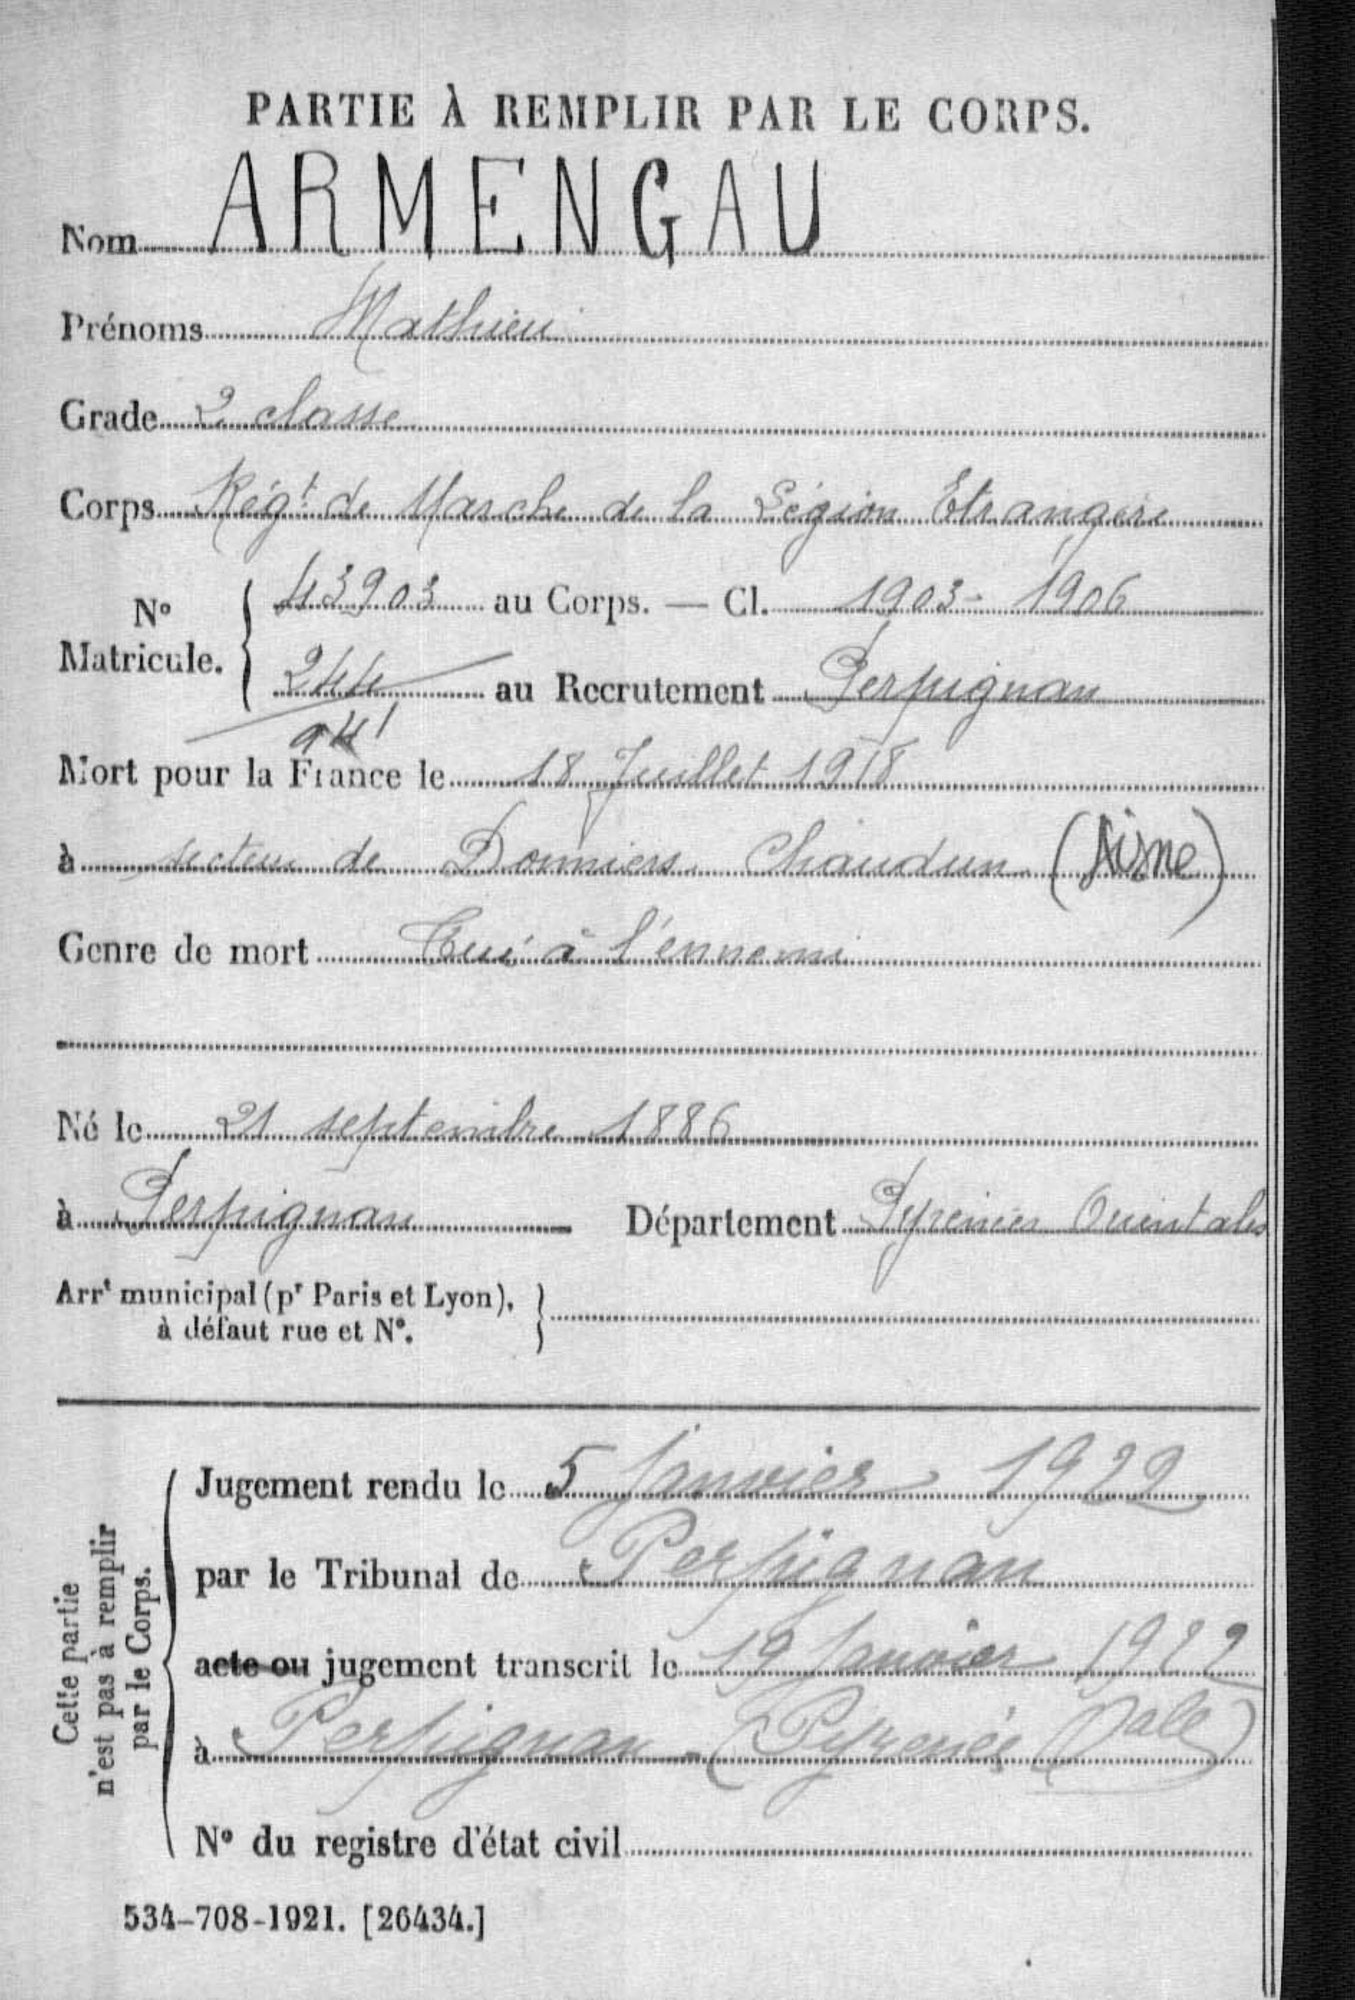 PARTIE À REMPLIR PAR LE CORPS.
Nom ARMENGAU
Prénoms Mathieu
Grade 2 classe
Corps Régt de Marche de la Légion Etrangère
N° Matricule. { 43903 au Corps. — Cl. 1903 - 1906
244 au Recrutement Perpignan
941
Mort pour la France le 18 Juillet 1918
à secteur de Dommiers Chaudun (Aisne)
Genre de mort Tué à l'ennemi
Né le 21 septembre 1886
à Perpignan Département Pyrénées Orientales
Arrt municipal (pr Paris et Lyon), }
à défaut rue et N°.
Cette partie
n'est pas à remplir
par le Corps.
Jugement rendu le 5 Janvier 1922
par le Tribunal de Perpignan
acte ou jugement transcrit le 19 Janvier 1922
à Perpignan - (Pyrénées Oales)
N° du registre d'état civil
534-708-1921. [26434.]